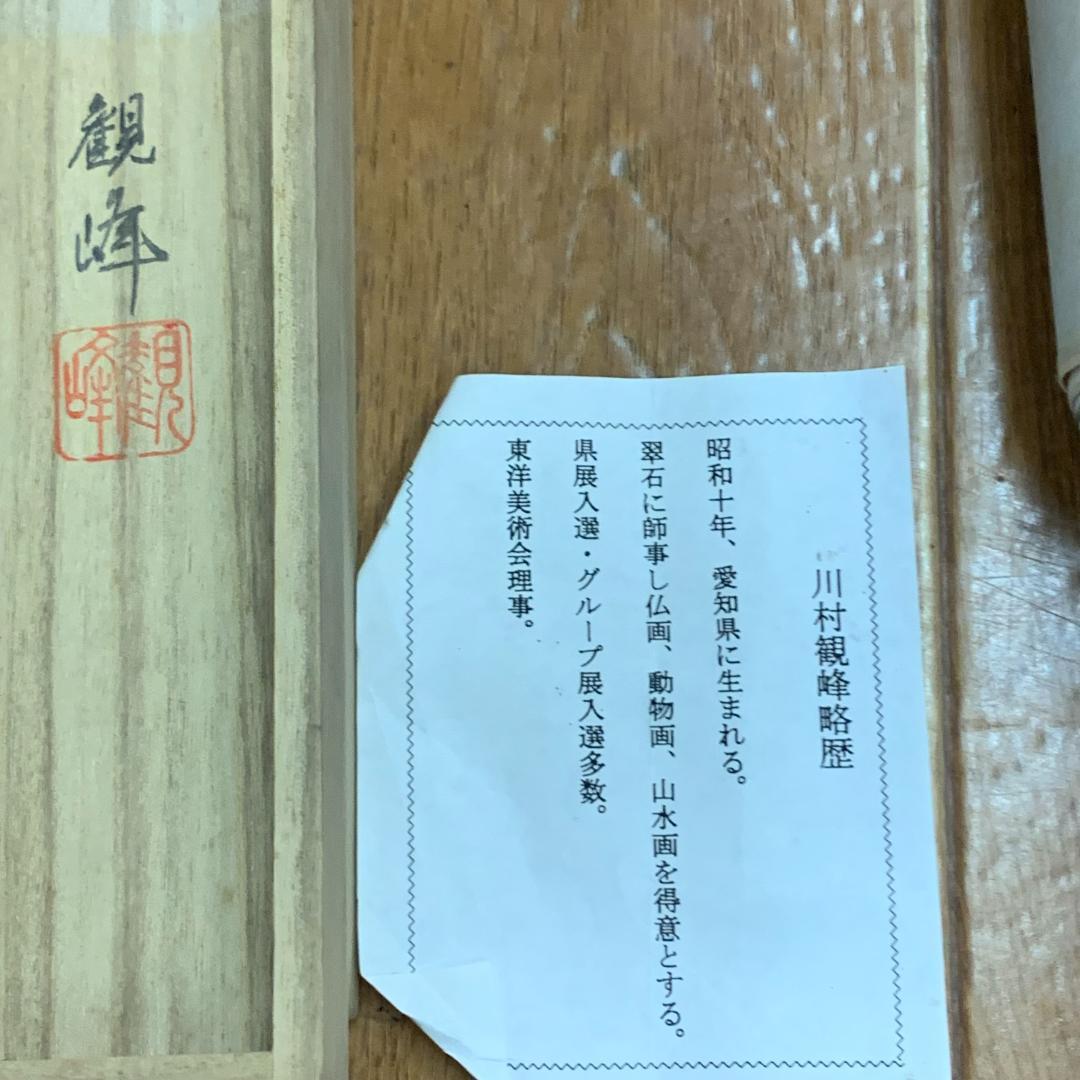 川村観峰略歴
昭和十年、愛知県に生まれる。
翠石に師事し仏画、動物画、山水画を得意とする。
県展入選・グループ展入選多数。
東洋美術会理事。
観峰
観峰